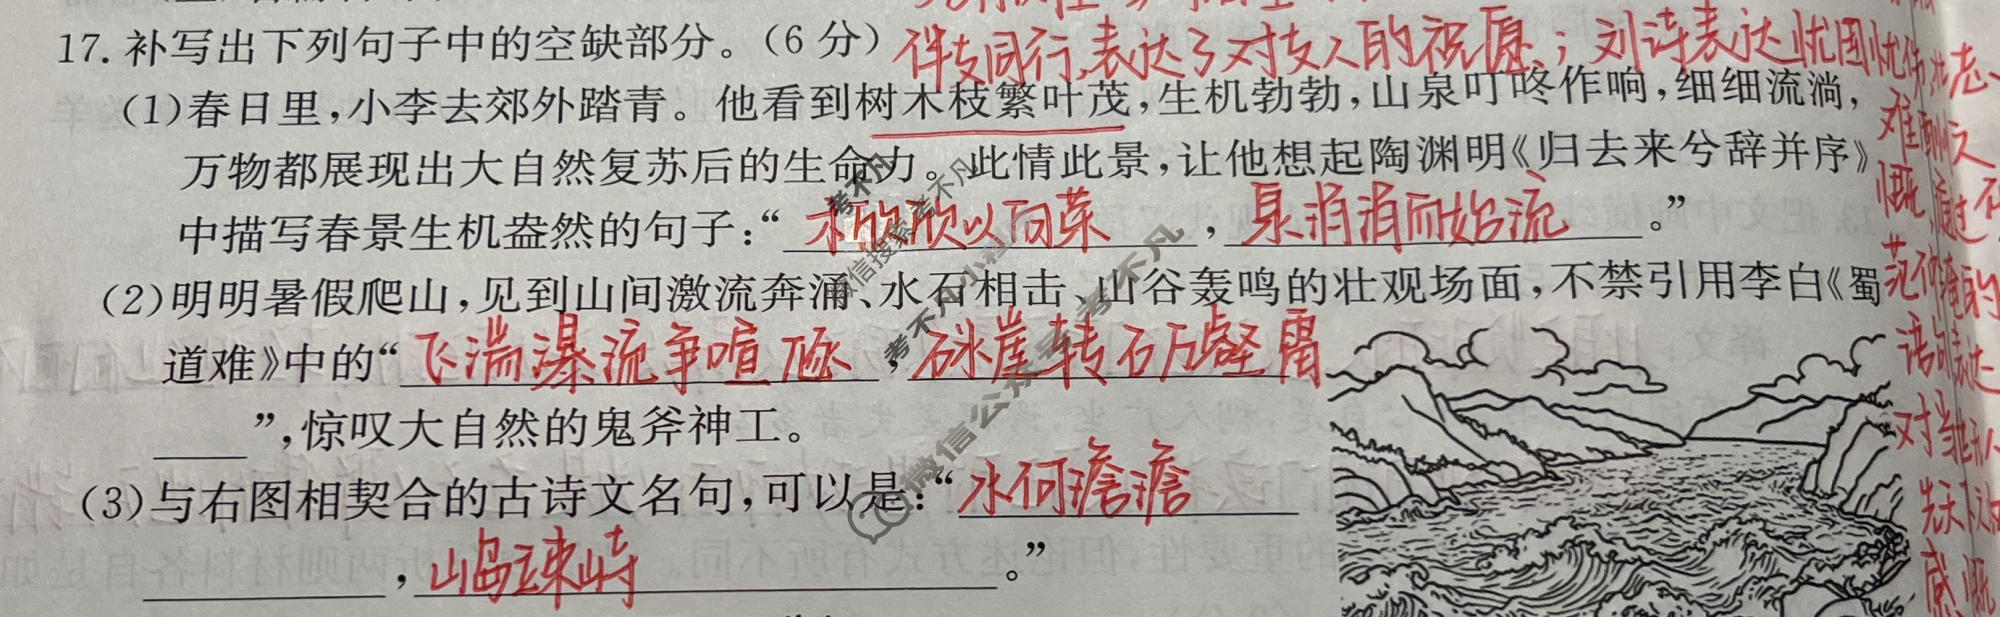 17.补写出下列句子中的空缺部分。(6分)
伴友同行,表达了对友人的祝愿;刘诗表达忧国忧伤
(1)春日里,小李去郊外踏青。他看到树木枝繁叶茂,生机勃勃,山泉叮咚作响,细细流淌,
万物都展现出大自然复苏后的生命力。此情此景,让他想起陶渊明《归去来兮辞并序》
中描写春景生机盎然的句子:“木欣欣以向荣,泉涓涓而始流。”
(2)明明暑假爬山,见到山间激流奔涌、水石相击、山谷轰鸣的壮观场面,不禁引用李白《蜀
道难》中的“飞湍瀑流争喧豗,砯崖转石万壑雷
”,惊叹大自然的鬼斧神工。
(3)与右图相契合的古诗文名句,可以是:“水何澹澹
,山岛竦峙。”
语句表达
对当
感慨
考不凡
微信搜索
考不凡
微信公众号:考不凡